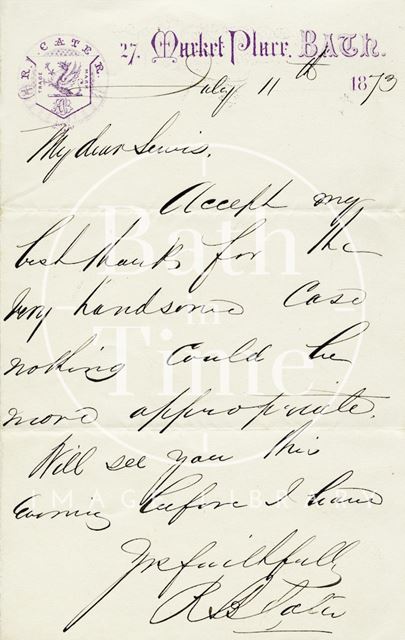 R. CATER.
TRADE MARK
27. Market Place. BATH.
July 11th 1873
My dear Lewis,
Accept my
best thanks for the
very handsome case
nothing could be
more appropriate.
Will see you this
evening before I leave
Yrs faithfully
R B Cater
Bath
in
Time
IMAGE LIBRARY